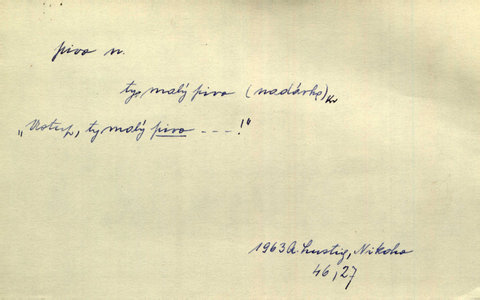 pivo n.
ty malý pivo (nadávka)
„Ustup, ty malý pivo ---!“
1963 A. Lustig, Nikoho
46,27